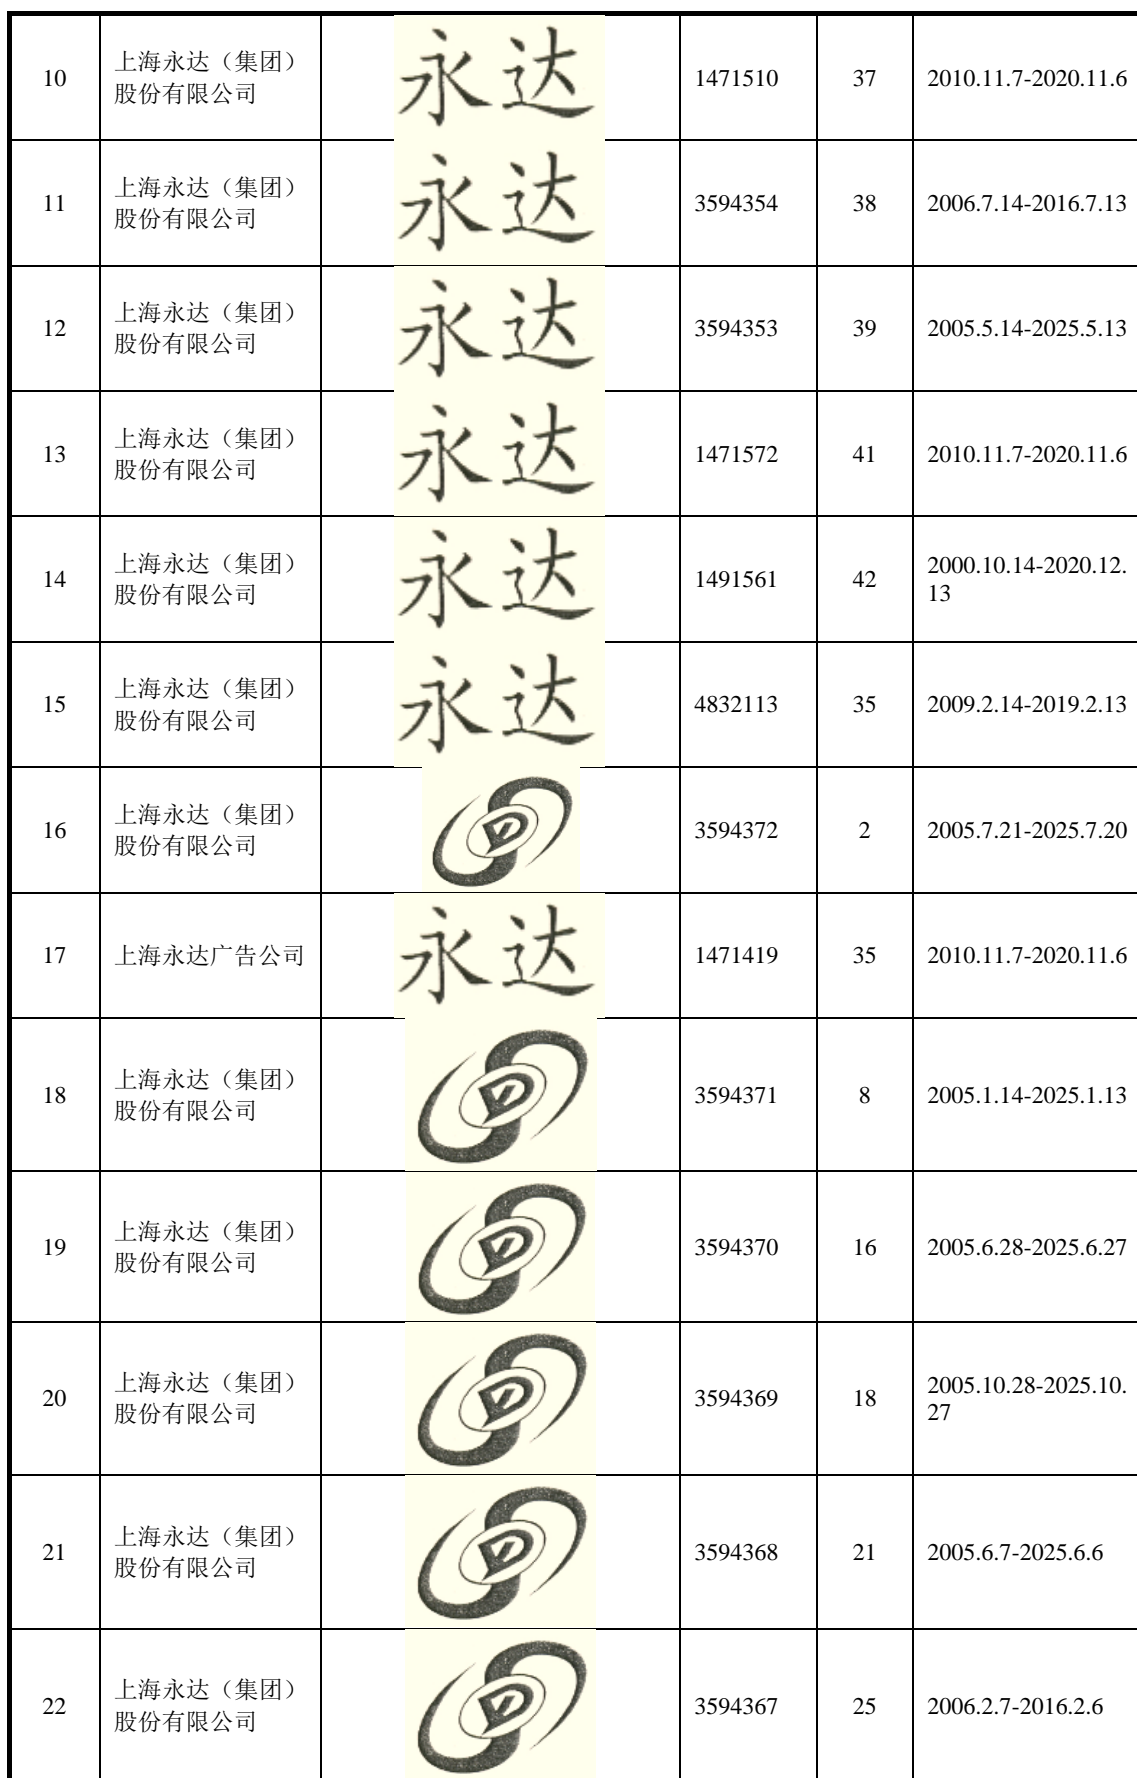 10
上海永达（集团）
股份有限公司
永达
1471510
37
2010.11.7-2020.11.6
11
上海永达（集团）
股份有限公司
永达
3594354
38
2006.7.14-2016.7.13
12
上海永达（集团）
股份有限公司
永达
3594353
39
2005.5.14-2025.5.13
13
上海永达（集团）
股份有限公司
永达
1471572
41
2010.11.7-2020.11.6
14
上海永达（集团）
股份有限公司
永达
1491561
42
2000.10.14-2020.12.
13
15
上海永达（集团）
股份有限公司
永达
4832113
35
2009.2.14-2019.2.13
16
上海永达（集团）
股份有限公司
D
3594372
2
2005.7.21-2025.7.20
17
上海永达广告公司
永达
1471419
35
2010.11.7-2020.11.6
18
上海永达（集团）
股份有限公司
D
3594371
8
2005.1.14-2025.1.13
19
上海永达（集团）
股份有限公司
D
3594370
16
2005.6.28-2025.6.27
20
上海永达（集团）
股份有限公司
D
3594369
18
2005.10.28-2025.10.
27
21
上海永达（集团）
股份有限公司
D
3594368
21
2005.6.7-2025.6.6
22
上海永达（集团）
股份有限公司
D
3594367
25
2006.2.7-2016.2.6